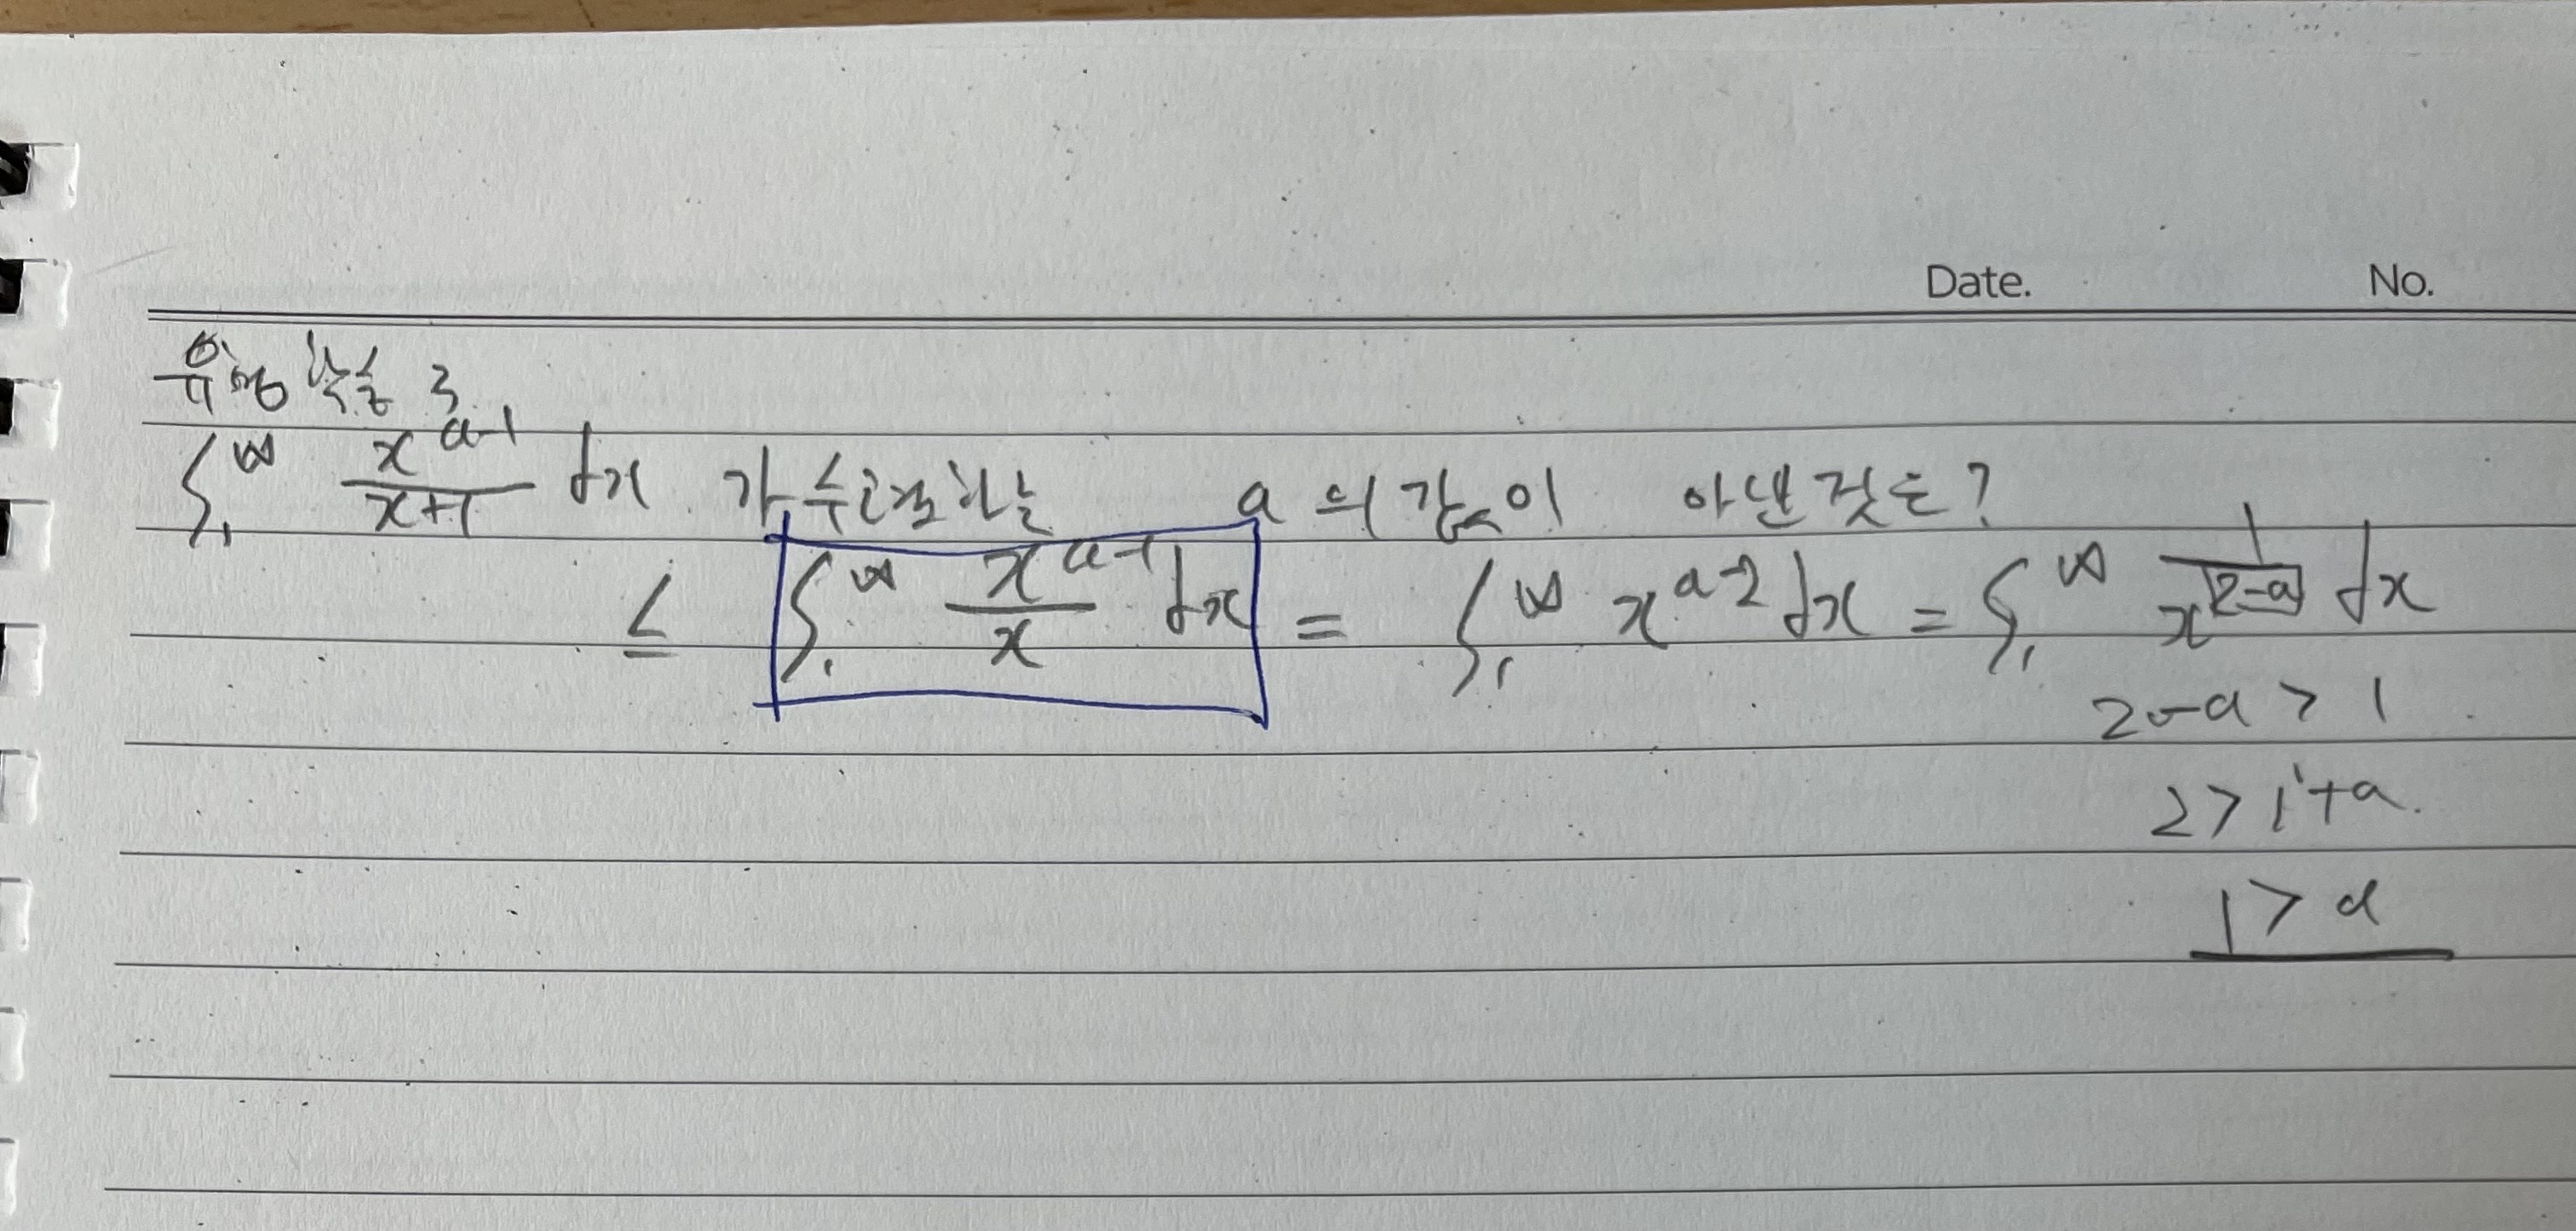 Date. No.
유형학습 3
∫₁^∞ x^(a-1)/(x+1) dx 가 수렴하는 a의 값이 아닌것은?
≤ ∫₁^∞ x^(a-1)/x dx = ∫₁^∞ x^(a-2) dx = ∫₁^∞ 1/x^(2-a) dx
2-a > 1
2 > 1+a.
1 > a